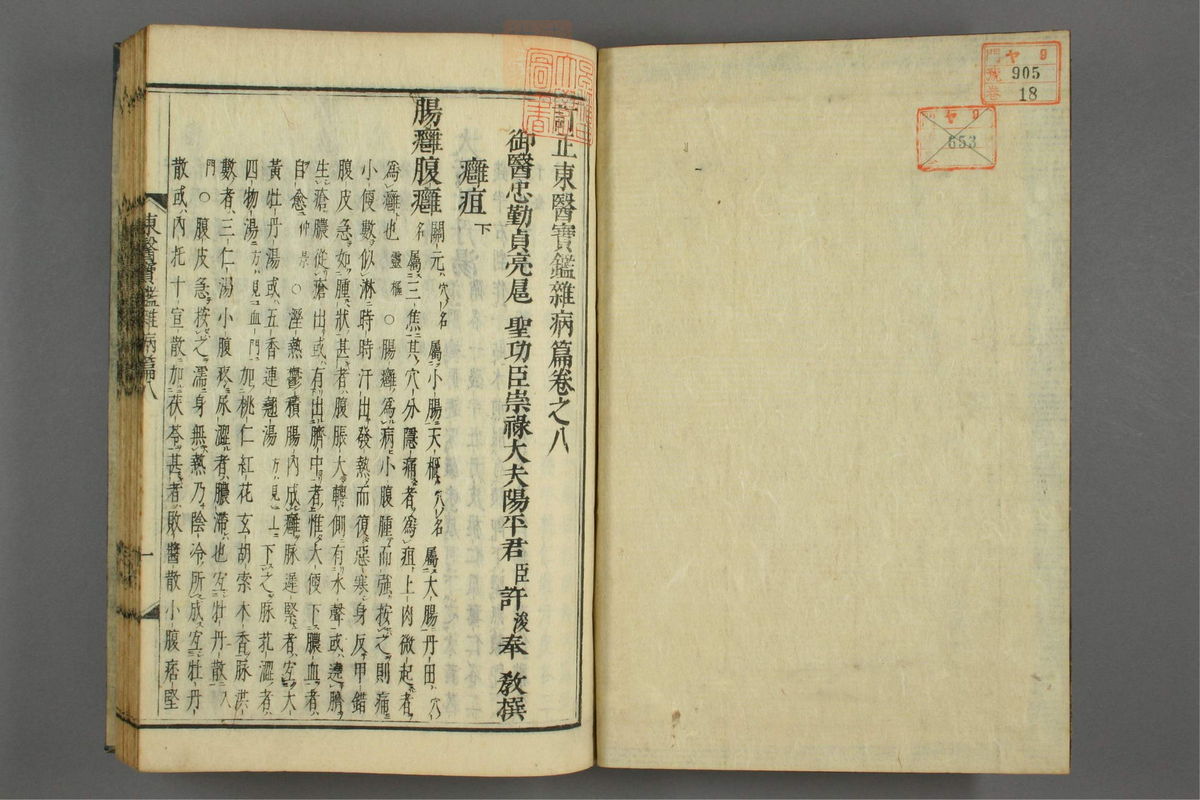 門 ヤ 9
號 905
卷 18
ヤ 9
653
訂正東醫寶鑑雜病篇卷之八
御醫忠勤貞亮扈 聖功臣崇祿大夫陽平君臣許浚奉 教撰
癰疽下
腸癰腹癰
關元穴名屬小腸天樞穴名屬大腸丹田穴
名屬三焦其穴分隱痛者爲疽上肉微起者
爲癰也靈樞○腸癰爲病小腹腫而強按之則痛
小便數似淋時時汗出發熱而復惡寒身反甲錯
腹皮急如腫狀甚者腹脹大轉側有水聲或遶臍
生瘡膿從瘡出或有出臍中者惟大便下膿血者
自愈仲景○溼熱鬱積腸內成癰脉遲緊者宜大
黃牡丹湯或五香連翹湯方見上下之脉芤澀者
四物湯方見血門加桃仁紅花玄胡索木香脉洪
數者三仁湯小腹疼尿澀者膿滯也宜牡丹散入
門○腹皮急按之濡身無熱乃陰冷所成宜牡丹
散或內托十宣散加茯苓甚者敗醬散小腹痞堅
東醫寶鑑雜病篇八
一